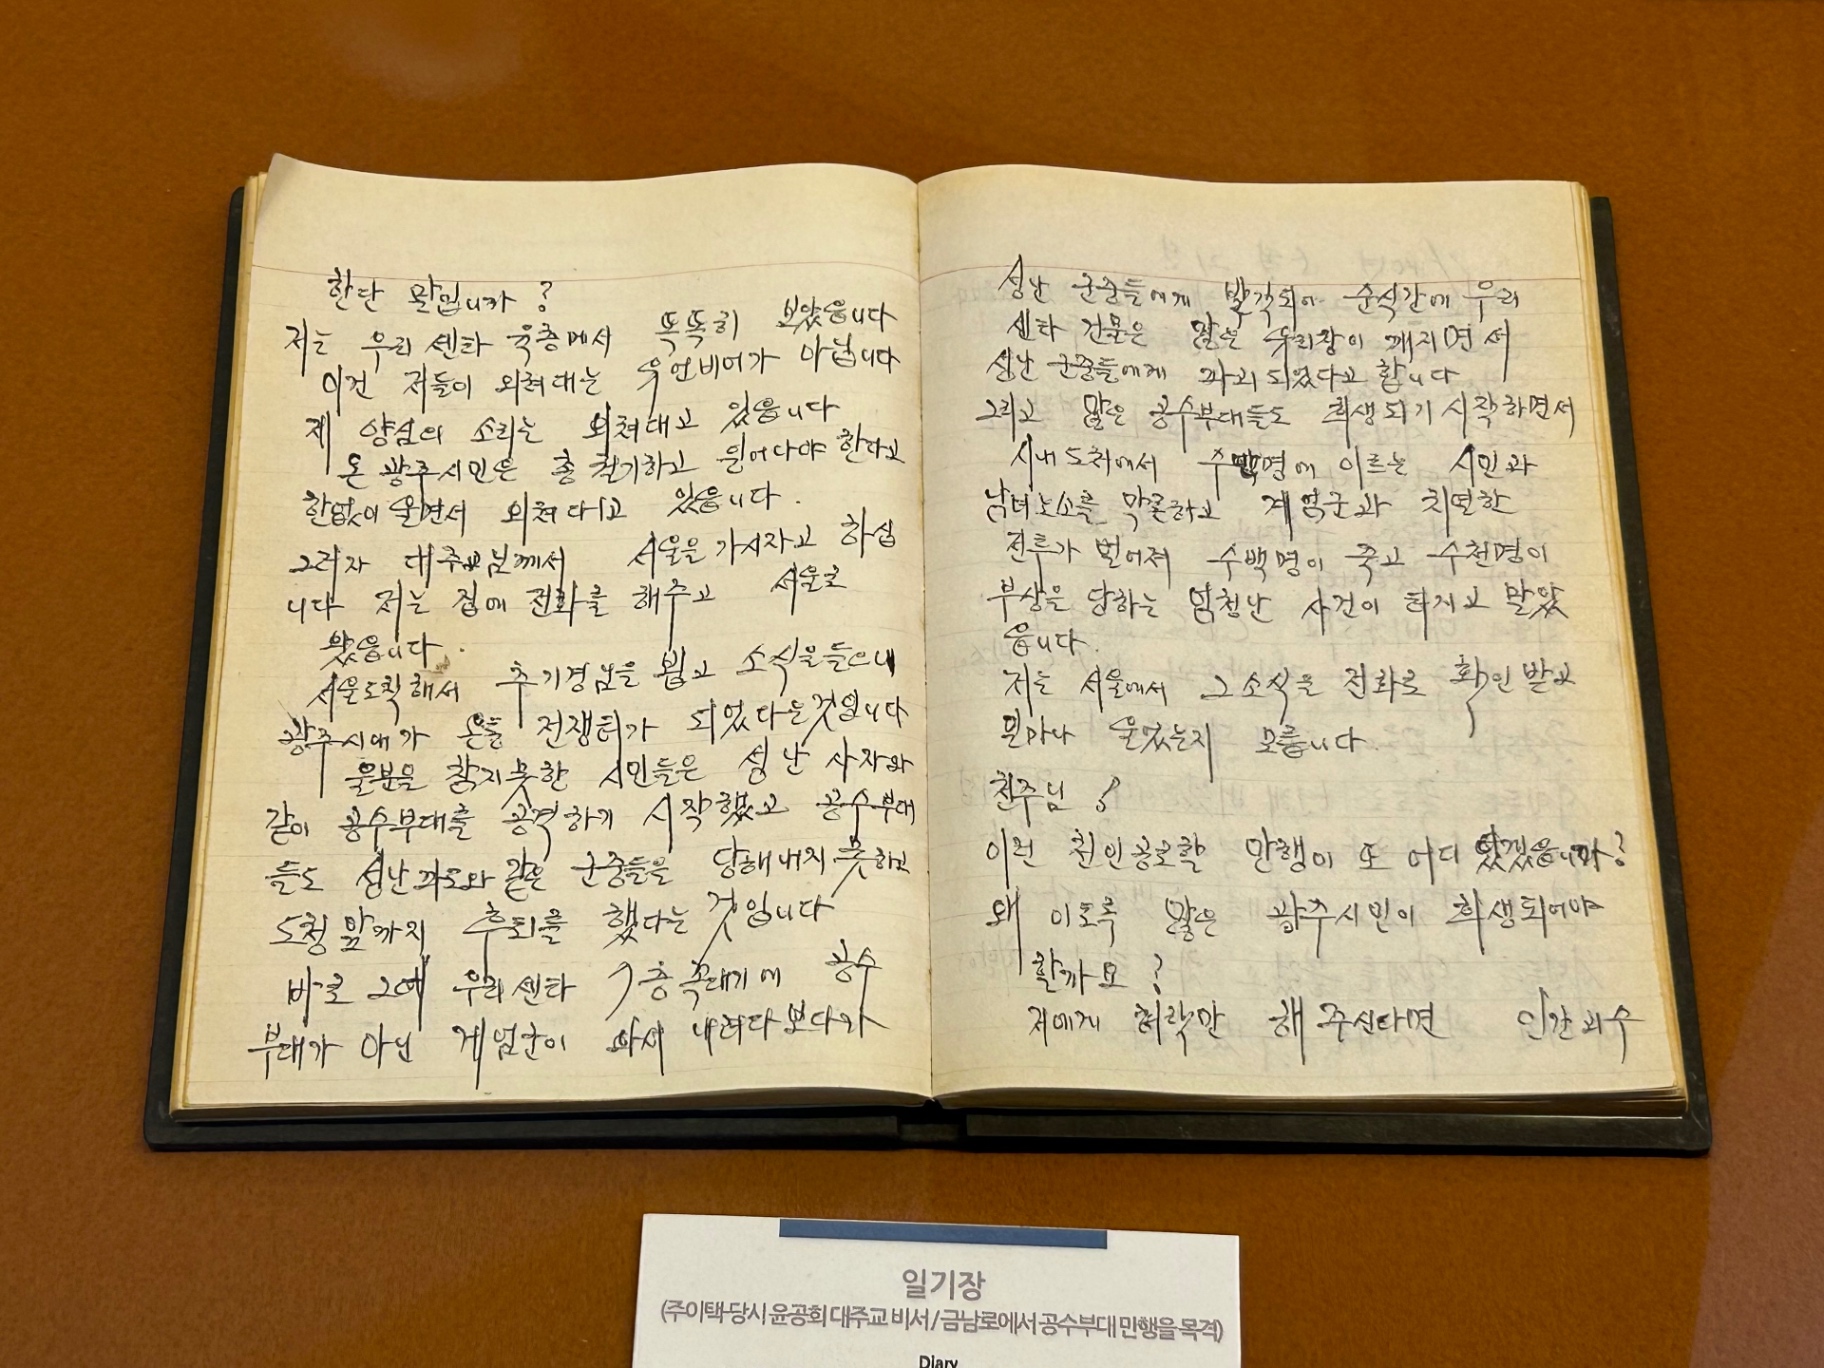 한단 말입니까?
저는 우리 센타 육층에서 똑똑히 보았읍니다
이건 저들이 외쳐대는 유언비어가 아닙니다
제 양심의 소리는 외쳐대고 있읍니다
온 광주시민은 총 궐기하고 일어나야 한다고
한없이 울면서 외쳐대고 있읍니다.
그러자 대주교님께서 서울을 가시자고 하십
니다 저는 집에 전화를 해주고 서울로
왔읍니다.
서울도착해서 추기경님을 뵙고 소식을 들으니
광주시내가 온통 전쟁터가 되었다는것입니다
울분을 참지못한 시민들은 성난 사자와
같이 공수부대를 공격하기 시작했고 공수부대
들도 성난파도와 같은 군중들을 당해내지 못하고
도청앞까지 후퇴를 했다는 것입니다
바로 그때 우리센타 7층 꼭대기에 공수
부대가 아닌 계엄군이 와서 내려다보다가
성난 군중들에게 발각되어 순식간에 우리
센타 건물은 많은 유리창이 깨지면서
성난 군중들에게 파괴되었다고 합니다
그리고 많은 공수부대들도 희생되기 시작하면서
시내도처에서 수백명에 이르는 시민과
남녀노소를 막론하고 계엄군과 치열한
전투가 벌어져 수백명이 죽고 수천명이
부상을 당하는 엄청난 사건이 터지고 말았
읍니다.
저는 서울에서 그소식을 전화로 확인받고
얼마나 울었는지 모릅니다.
천주님!
이런 천인공노할 만행이 또 어디 있겠읍니까?
왜 이토록 많은 광주시민이 희생되어야
할까요?
저에게 허락만 해주신다면 인간괴수
일기장
(주이택-당시 윤공희 대주교 비서/금남로에서 공수부대 만행을 목격)
Diary